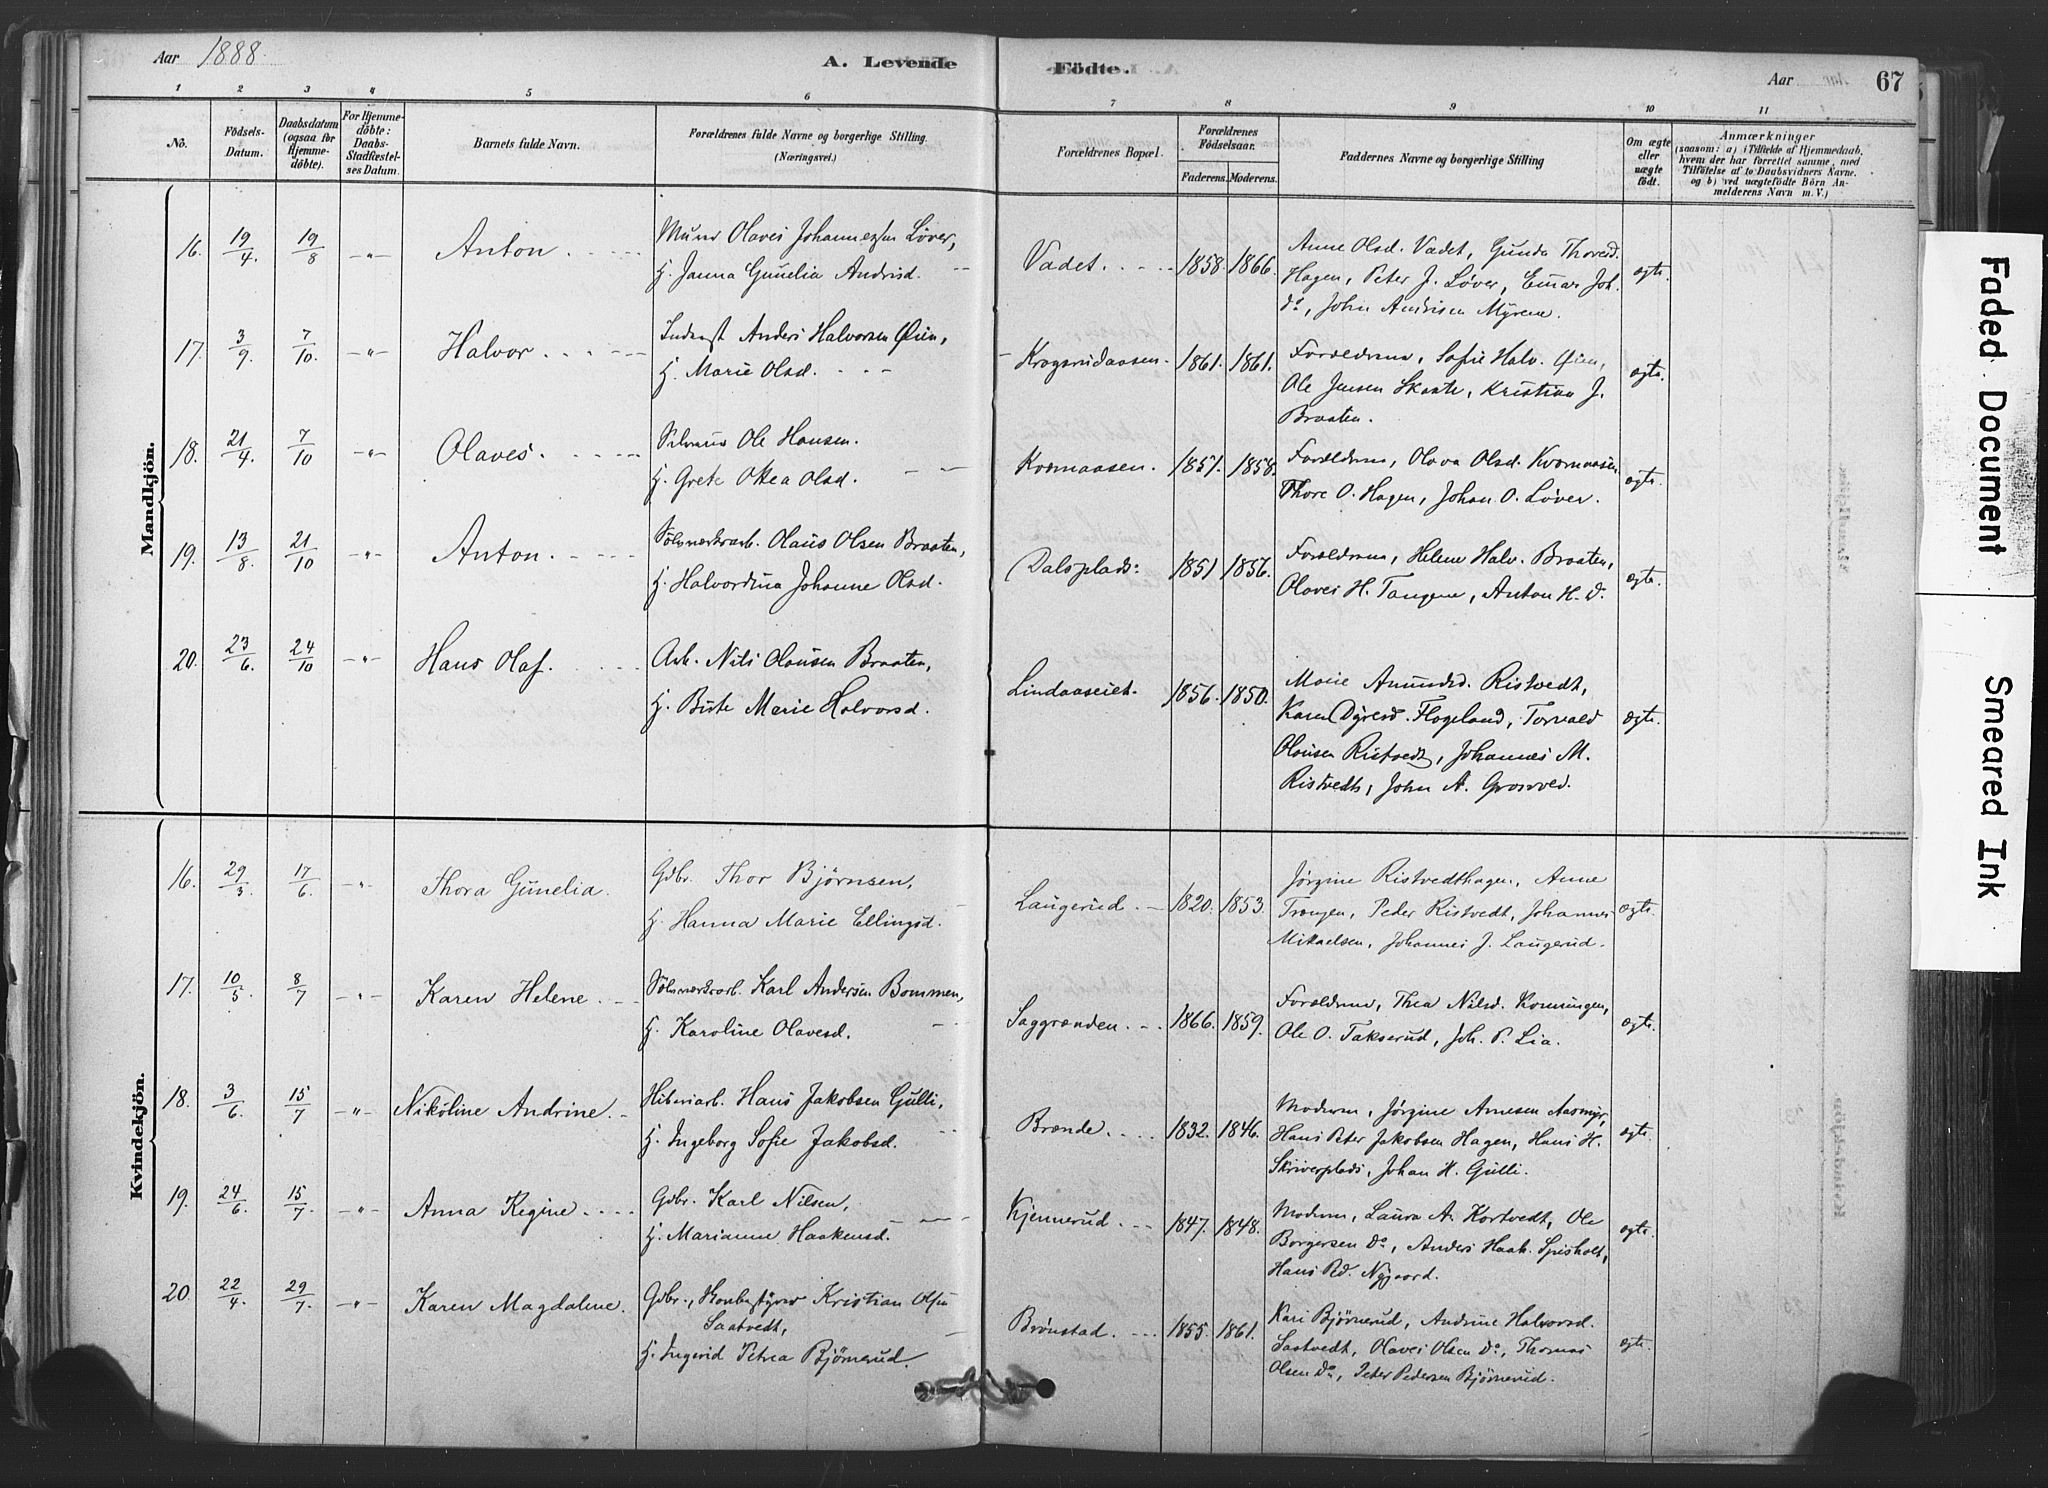 Aar 1888.
A. Levende Födte.
Aar 67
1 2 3 4 5 6 7 8 9 10 11
No.
Födsels-Datum.
Daabsdatum (ogsaa for Hjemmedöbte).
For Hjemmedöbte: Daabs-Stadfæstelses Datum.
Barnets fulde Navn.
Forældrenes fulde Navne og borgerlige Stilling. (Næringsvei.)
Forældrenes Bopæl.
Forældrenes Födselsaar.
Faderens. Moderens.
Faddernes Navne og borgerlige Stilling
Om ægte eller uægte födt.
Anmærkninger
(saasom: a) i Tilfælde af Hjemmedaab, hvem der har forrettet samme, med Tilföielse af to Daabsvidners Navne. og b) ved uægtefödte Börn Anmelderens Navn m. V.)
Mandkjön.
16. 19/4. 19/8 -"- Anton
Murer Olaves Johannessen Løver,
H. Janna Gunelia Andrisd.
Vadet. 1858. 1866.
Anne Olsd. Vadet, Gunda Thorvd.
Hagen, Peter J. Løver, Einar Joh.
do, John Andrisen Myrene.
ægte.
17. 3/9. 7/10. -"- Halvor
Inderst Anders Halvorsen Øien,
H. Marie Olsd.
Krogsrudaasen. 1861. 1861.
Forældrene, Sofie Halv. Øien,
Ole Jensen Skaate, Kristian J.
Braaten.
ægte.
18. 21/4. 7/10 -"- Olaves.
Ole Hansen.
H. Grete Ottea Olsd.
Kvernaasen. 1857. 1858.
Forældrene, Olava Olsd. Kvernaasen
Thore O. Hagen, Johan O. Løver.
ægte.
19. 13/8. 21/10 -"- Anton
Sölvværksarb. Olaus Olsen Braaten,
H. Halvordina Johanne Olsd.
Dalsplads. 1851 1856.
Forældrene, Helene Halv. Braaten,
Olaves H. Tangene, Anton H. D.
ægte.
20. 23/6. 24/10 -"- Hans Olaf.
Arb. Nils Olausen Braaten,
H. Birte Marie Halvorsd.
Lindaaseiet. 1856. 1850.
Marie Amundsd. Ristvedt,
Karen Dyresd. Flogeland, Torvald
Olausen Ristvedt, Johannes M.
Ristvedt, John A. Grosved.
ægte.
Kvindekjön.
16. 29/3. 17/6. -"- Thora Gunelia.
Gdbr. Thor Björnsen,
H. Hanna Marie Ellingsd.
Laugerud. 1820. 1853.
Jørgine Ristvedthagen, Anne
Trangen, Peder Ristvedt, Johannes
Mikaelsen, Johannes J. Laugerud.
ægte.
17. 10/5. 8/7 -"- Karen Helene.
Sölvværksarb. Karl Andersen Bommen,
H. Karoline Olavesd.
Saggrenden. 1866. 1859.
Forældrene, Thea Nilsd. Komningen,
Ole O. Takserud, Joh. P. Lia.
ægte.
18. 3/6. 15/7 -"- Nikoline Andrine.
Hiberiarb. Hans Jakobsen Gulli,
H. Ingeborg Sofie Jakobsd.
Brænde. 1832. 1846.
Moderen, Jørgine Arnesen Aasmyr,
Hans Peter Jakobsen Hagen, Hans H.
Skriverplads, Johan H. Gulli.
ægte.
19. 24/6. 15/7. -"- Anna Regine.
Gdbr. Karl Nilsen,
H. Marianne Haakensd.
Kjennerud. 1847. 1848.
Moderen, Laura A. Kortvedt, Ole
Borgersen Do, Anders Haak. Spisholt,
Hans Pd. Nygaard.
ægte.
20. 22/4. 29/7. -"- Karen Magdalene.
Gdbr., Kristian Olsen
Saatvedt,
H. Ingerid Petrea Björnerud.
Brønstad. 1855. 1861.
Kari Bjørnerud, Andrine Halvorsd.
Saatvedt, Olaves Olsen Do, Thomas
Olsen Do, Peter Pedersen Bjørnerud.
ægte.
Faded Document
Smeared Ink